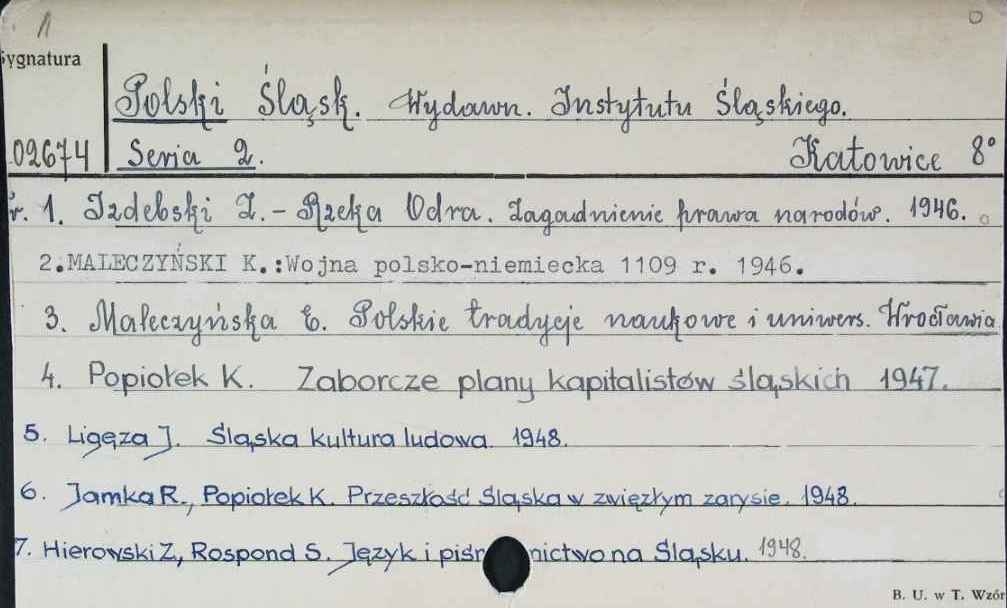 Sygnatura
Polski Śląsk. Wydawn. Instytutu Śląskiego.
02674 Seria 2. Katowice 8°
r. 1. Izdebski Z. - Rzeka Odra. Zagadnienie prawa narodów. 1946.
2. MALECZYŃSKI K.: Wojna polsko-niemiecka 1109 r. 1946.
3. Maleczyńska E. Polskie tradycje naukowe i uniwers. Wrocławia
4. Popiołek K. Zaborcze plany kapitalistów śląskich 1947.
5. Ligęza J. Śląska kultura ludowa. 1948.
6. Jamka R., Popiołek K. Przeszłość Śląska w zwięzłym zarysie. 1948.
7. Hierowski Z, Rospond S. Język i piśmnictwo na Śląsku. 1948.
B. U. w T. Wzór